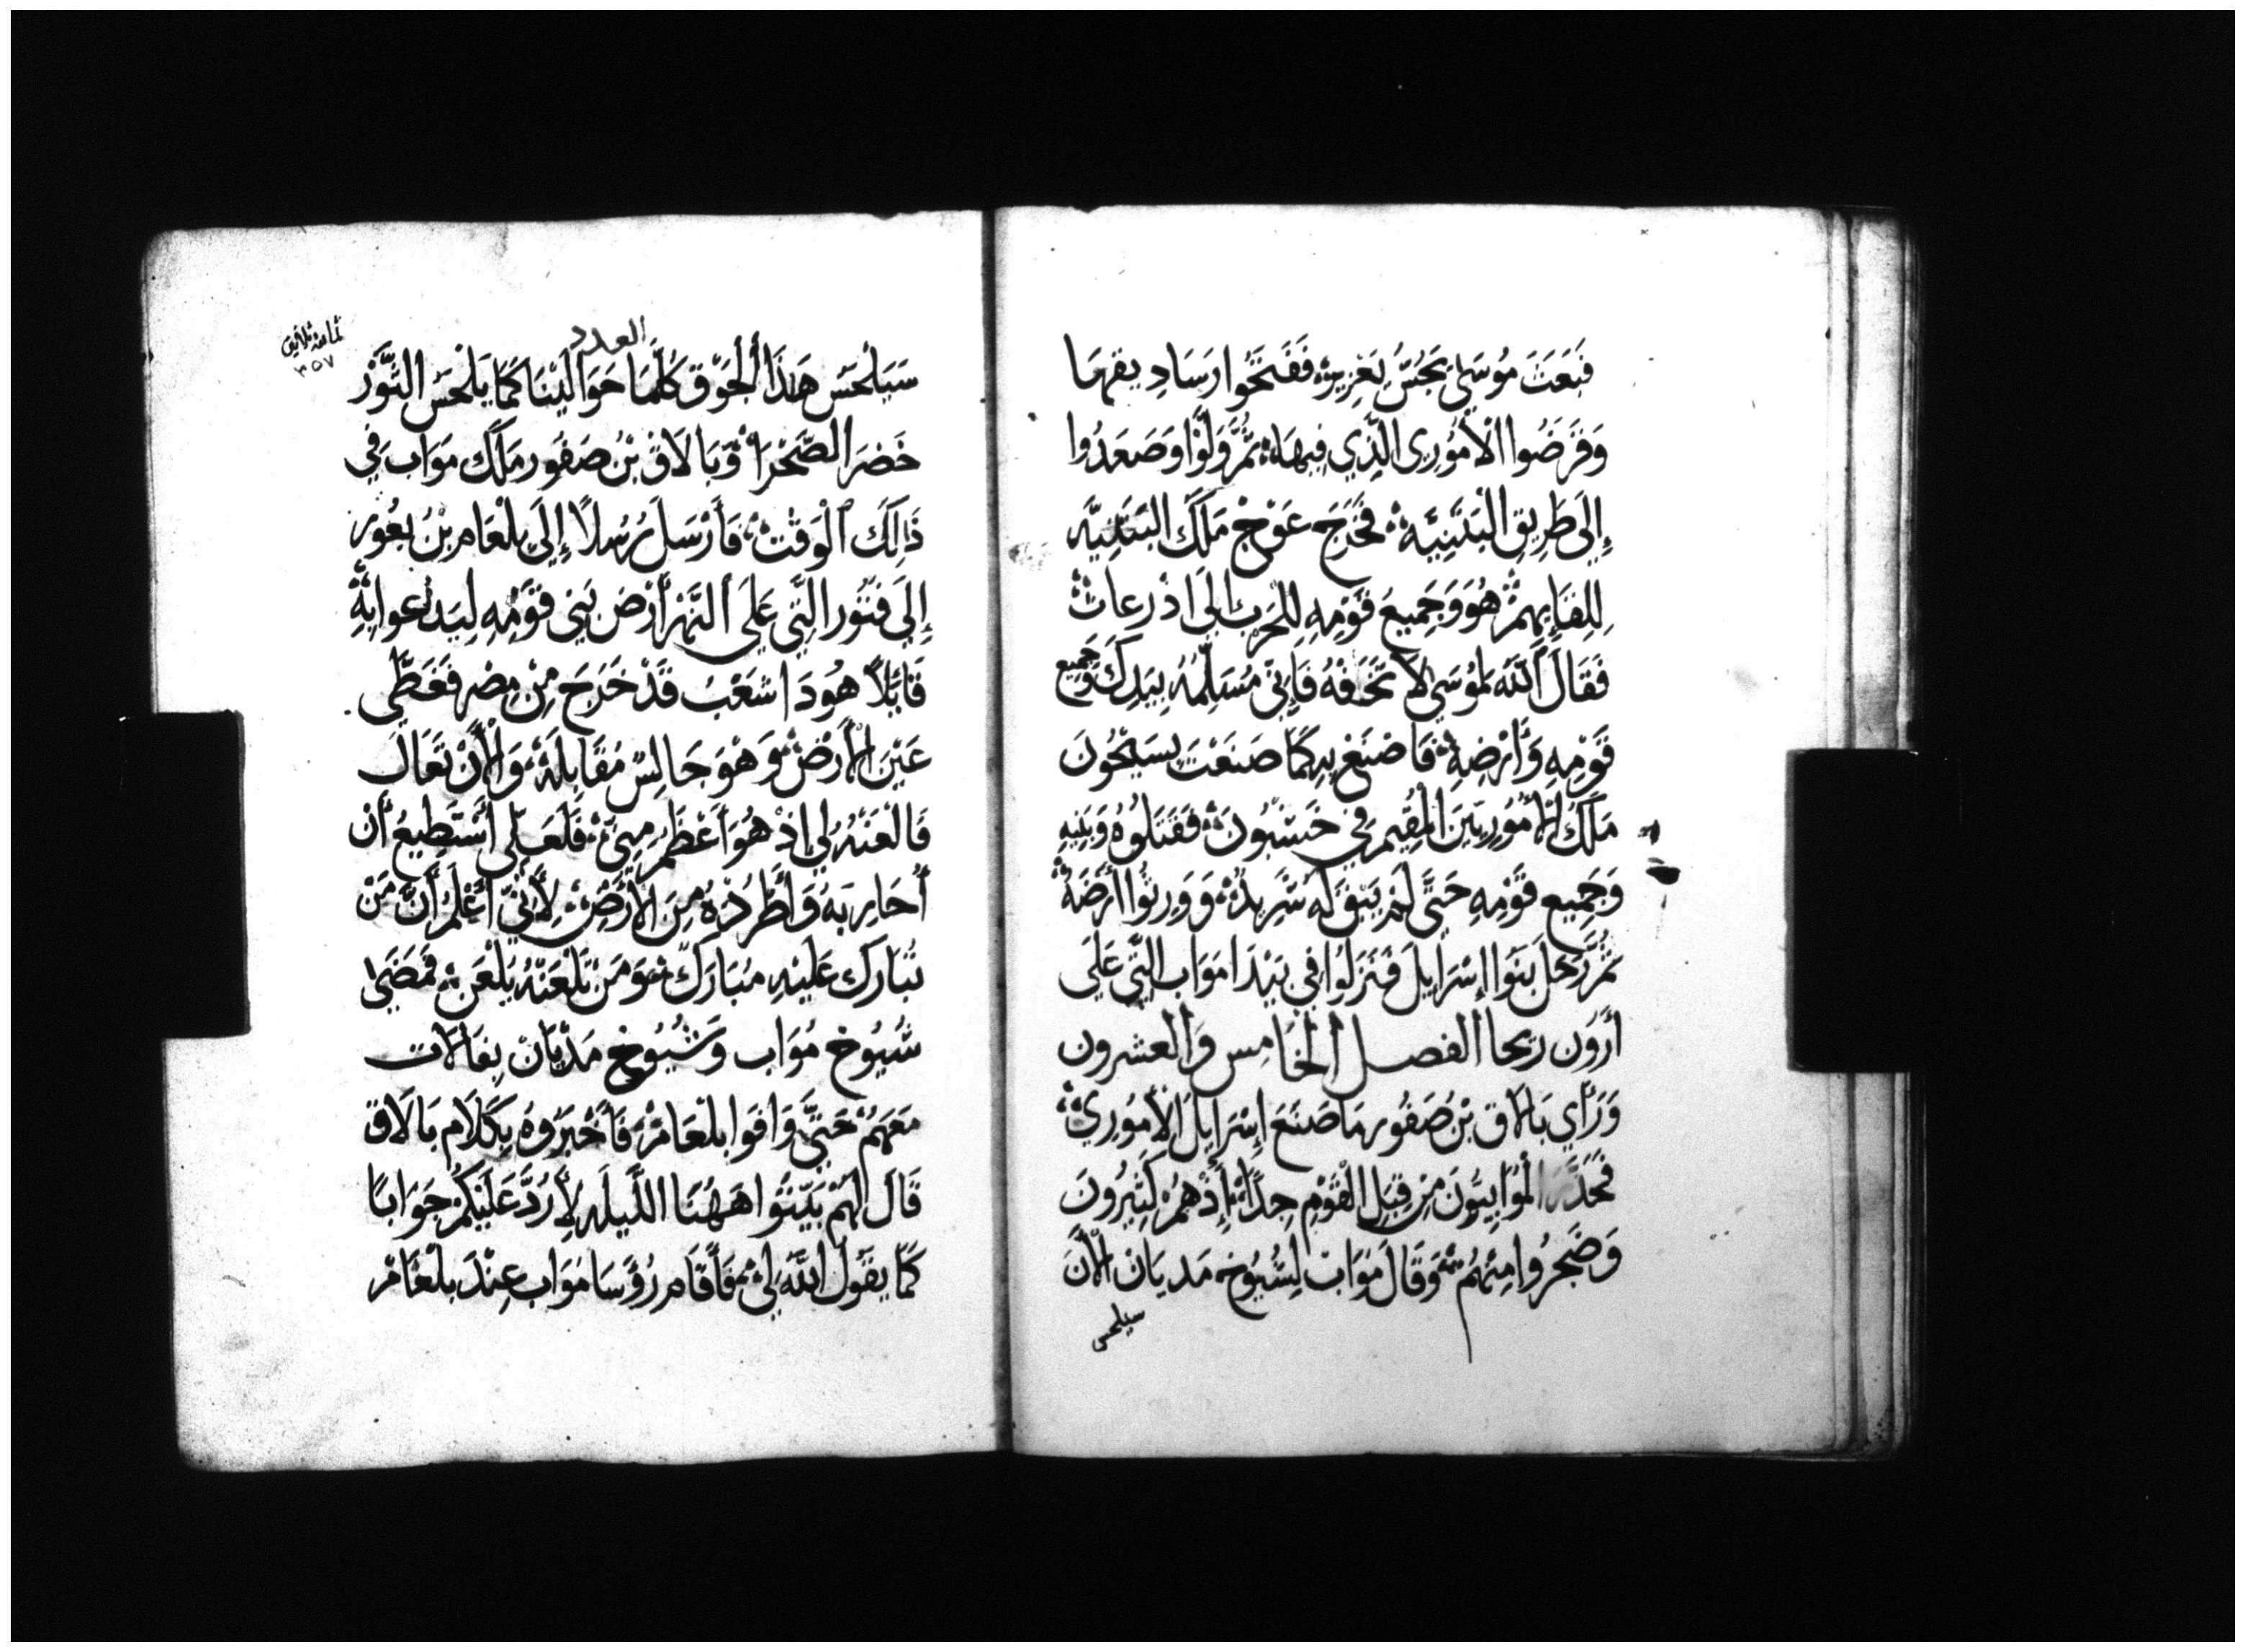 فَبَعَثَ مُوسَى يَجُسُّ يَعْزِيرَهْ فَفَتَحُوا رَسَادِيقهَا
وَقَرَضُوا الْأَمُورِي الَّذِي فِيهَا ثُمَّ وَلَّوْا وَصَعَدُوا
إِلَى طَرِيقِ الْبَثَنِيَّهْ فَخَرَجَ عَوْجْ مَلَكَ الْبَثَنِيَّه
لِلِقَايِهِمْ هُوَ وَجَمِيعَ قَوْمِهِ لِلحَرْب إِلَى اذْرعَاتْ
فَقَالَ اللَّهَ لمُوسَى لَا تَخَفْهُ فَإِنِّي مُسَلِّمُهُ بِيَدِكَ وَجَمِيع
قَوْمِهِ وَأَرْضِهِ فَاصْنَعْ بِهِ كَمَا صَنَعْتَ بِسَيْحُونَ
مَلَكُ الْأَمُورِيِّينَ الْمُقِيم فِي حَسْبُونَ فَقَتَلُوهُ وَبَنِيهِ
وَجَمِيع قَوْمِهِ حَتَّى لَمْ يَبْقَ لَه شَرِيدٌ وَوَرِثُوا أَرْضَهُ
ثُمَّ رَحَلَ بَنُوا إِسْرَايِلَ فَنَزَلُوا فِي بَيْدَا مَوَاب الَّتِي عَلَى
أَرْدَن ريحا الفصل الْخَامِس وَالعشرون
وَرَأَي بَالَاق بْنَ صَفُور مَا صَنَعَ إِسْرَايِلَ الأَمُورِيْ
فَحَذَّر الْمُوَابِيُّونَ مِنْ قِبَلِ الْقَوْمِ جِدًا إِذْ هُمْ كَثِيرُونَ
وَضَجِرُوا مِنْهُمْ وَقَالَ مَوَابْ لِشُيُوخِ مَديَانْ الْآنَ
سيلحس
العدد
ثامنة ثلاثين
٣٥٧
سَيَلْحَسُ هَذَا الْجَوْق كُلَّمَا حَوَالَيْنَا كَمَا يَلْحَسُ الثَّوْرْ
خَضَرَ الصَّحْرَاءْ وَبَالَاقْ بْنُ صَفُور مَلَكَ مَوَاب فِي
ذَلِكَ الْوَقْتْ فَأَرْسَلَ رُسُلاً إِلَى بِلْعَام بْنُ بعُورْ
إِلَى فَتُورَ الَّتِي عَلَى النَّهْرْ أَرْضَ بَنِي قَوْمِهِ لِيَدْعوا بِهِ
قَايِلاً هُوَدَا شَعْبٌ قَدْ خَرَجَ مِنْ مِصْر فَغَطَّى
عَيْنَ الأَرْضْ وَهُوَ جَالِسٌ مُقَابِلَهْ وَالْآنْ تَعَالَ
فَالْعَنْهُ لِي إِذْ هُوَ أَعْظَم مِنِّي فَلَعَلِّي أَسْتَطِيعُ أَنْ
أُحَارِبَهُ وَأَطْرُدْهُ مِنَ الأَرْضْ لِأَنِّي أَعْلَمُ أَنَّ مَنْ
تُبَارِك عَلَيْهِ مُبَارَكٌ وَمَنْ تَلْعَنْهُ يُلْعَنْ فَمَضَى
شُيُوخ مُوَاب وَشُيُوخ مَدْيَانْ بِفَالَات
مَعَهُمْ حَتَّى وَافَوا بلْعَامْ فَأَخْبَرُوهُ بِكَلَام بَالَاق
قَالَ لَهُمْ بَيِّتُوا هَهُنَا اللَّيلَه لأَرُدَّ عَلَيْكُمْ جَوَابًا
كَمَا يقُولُ اللَّهُ لِي فَأَقَام رُؤَسَا مَوَاب عِنْدَ بلْعَامْ